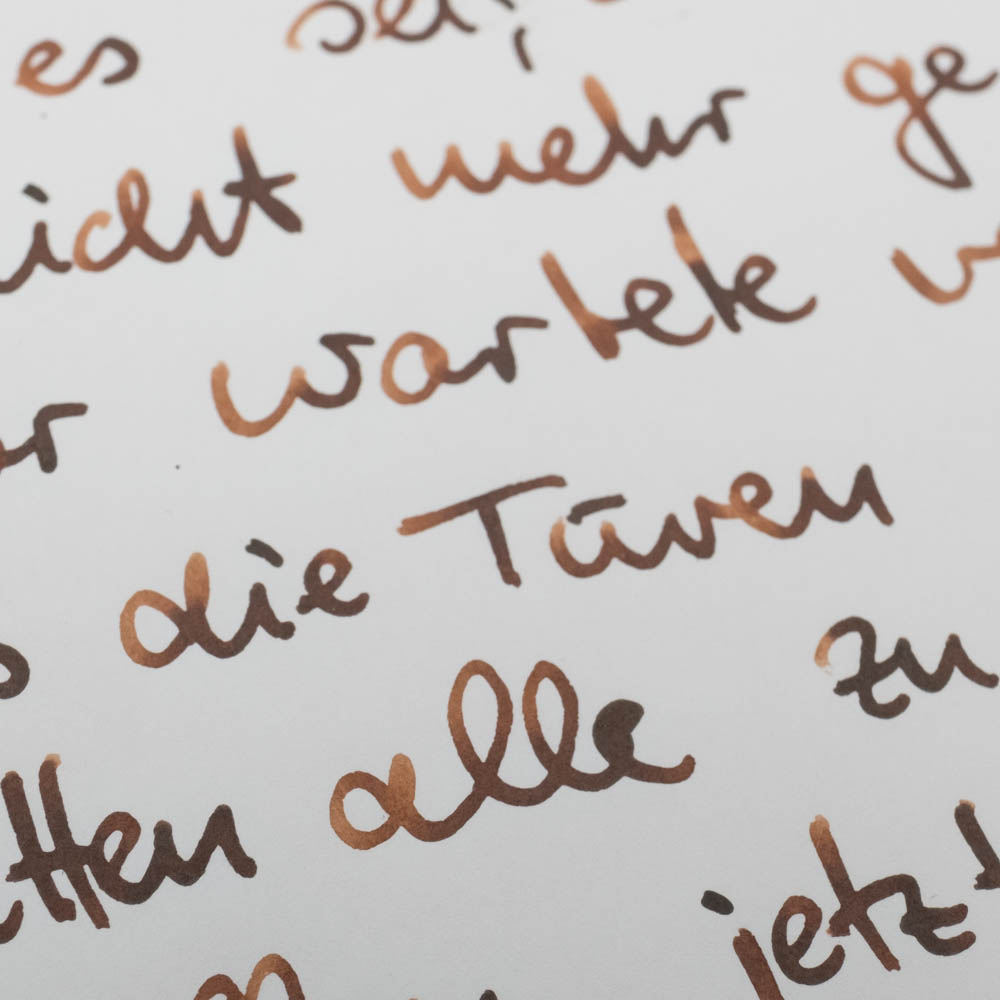 es sei,
icht mehr ge
r wartete
s die Türen
tten alle zu
jetzt